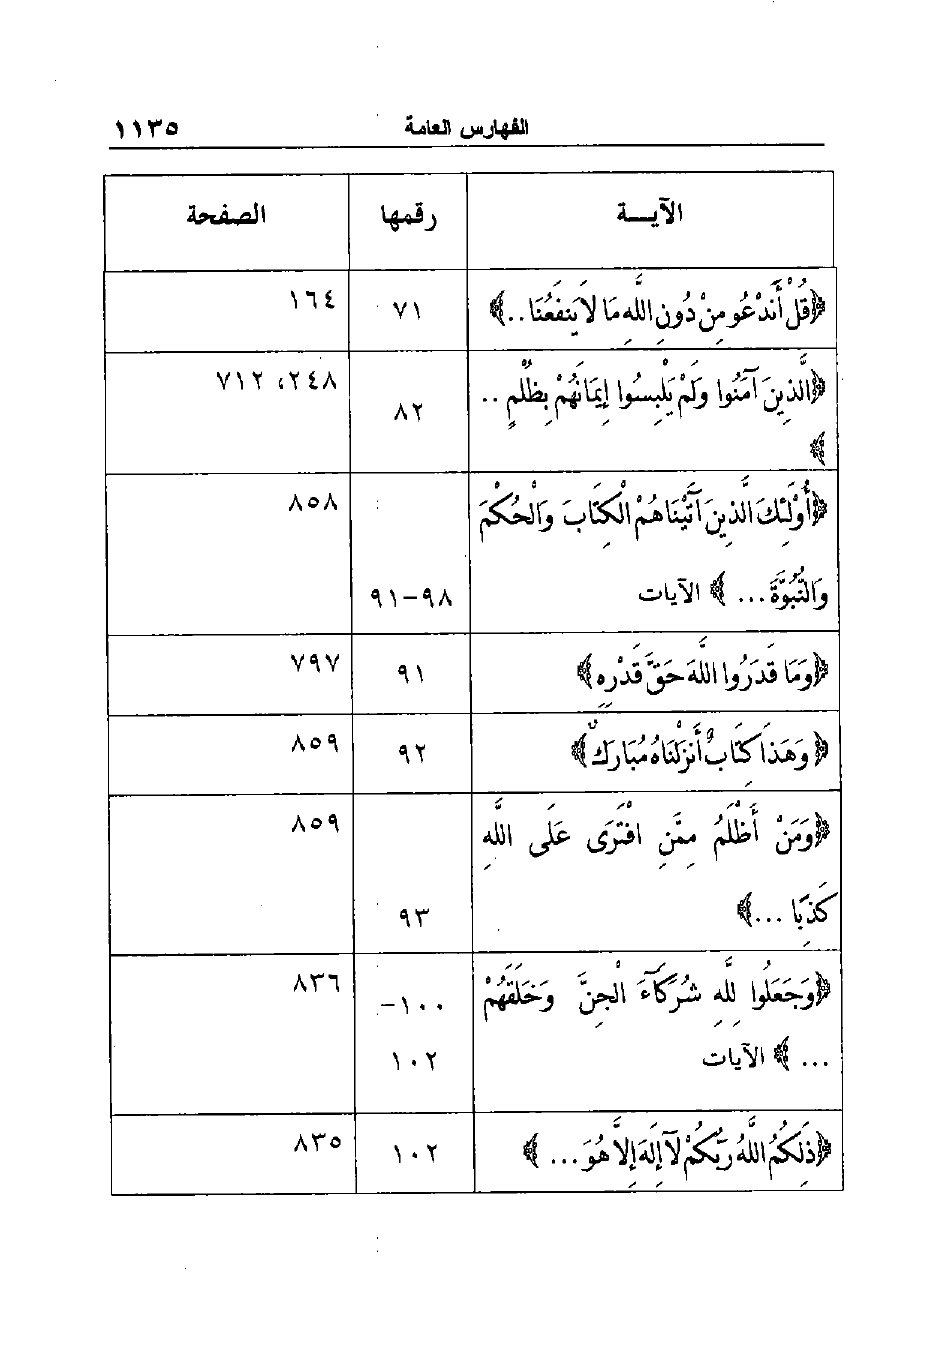 الفهارس العامة ١١٣٥
الآيـــة رقمها الصفحة
﴿قُلْ أَنَدْعُو مِنْ دُونِ اللَّهِ مَا لاَ يَنفَعُنَا ..﴾ ٧١ ١٦٤
﴿الَّذِينَ آمَنُوا وَلَمْ يَلْبِسُوا إِيمَانَهُمْ بِظُلْمٍ .. ٢٤٨، ٧١٢
﴾ ٨٢
﴿أُوْلَئِكَ الَّذِينَ آتَيْنَاهُمْ الْكِتَابَ وَالْحُكْمَ ٨٥٨
وَالنُّبُوَّةَ ... ﴾ الآيات ٩٨-٩١
﴿وَمَا قَدَرُوا اللَّهَ حَقَّ قَدْرِهِ﴾ ٩١ ٧٩٧
﴿وَهَذَا كِتَابٌ أَنزَلْنَاهُ مُبَارَكٌ﴾ ٩٢ ٨٥٩
﴿وَمَنْ أَظْلَمُ مِمَّنِ افْتَرَى عَلَى اللَّهِ ٨٥٩
كَذِبًا ...﴾ ٩٣
﴿وَجَعَلُوا لِلَّهِ شُرَكَآءَ الْجِنَّ وَخَلَقَهُمْ ١٠٠- ٨٣٦
... ﴾ الآيات ١٠٢
﴿ذَلِكُمُ اللَّهُ رَبُّكُمْ لَآ إِلَهَ إِلاَّ هُوَ ... ﴾ ١٠٢ ٨٣٥